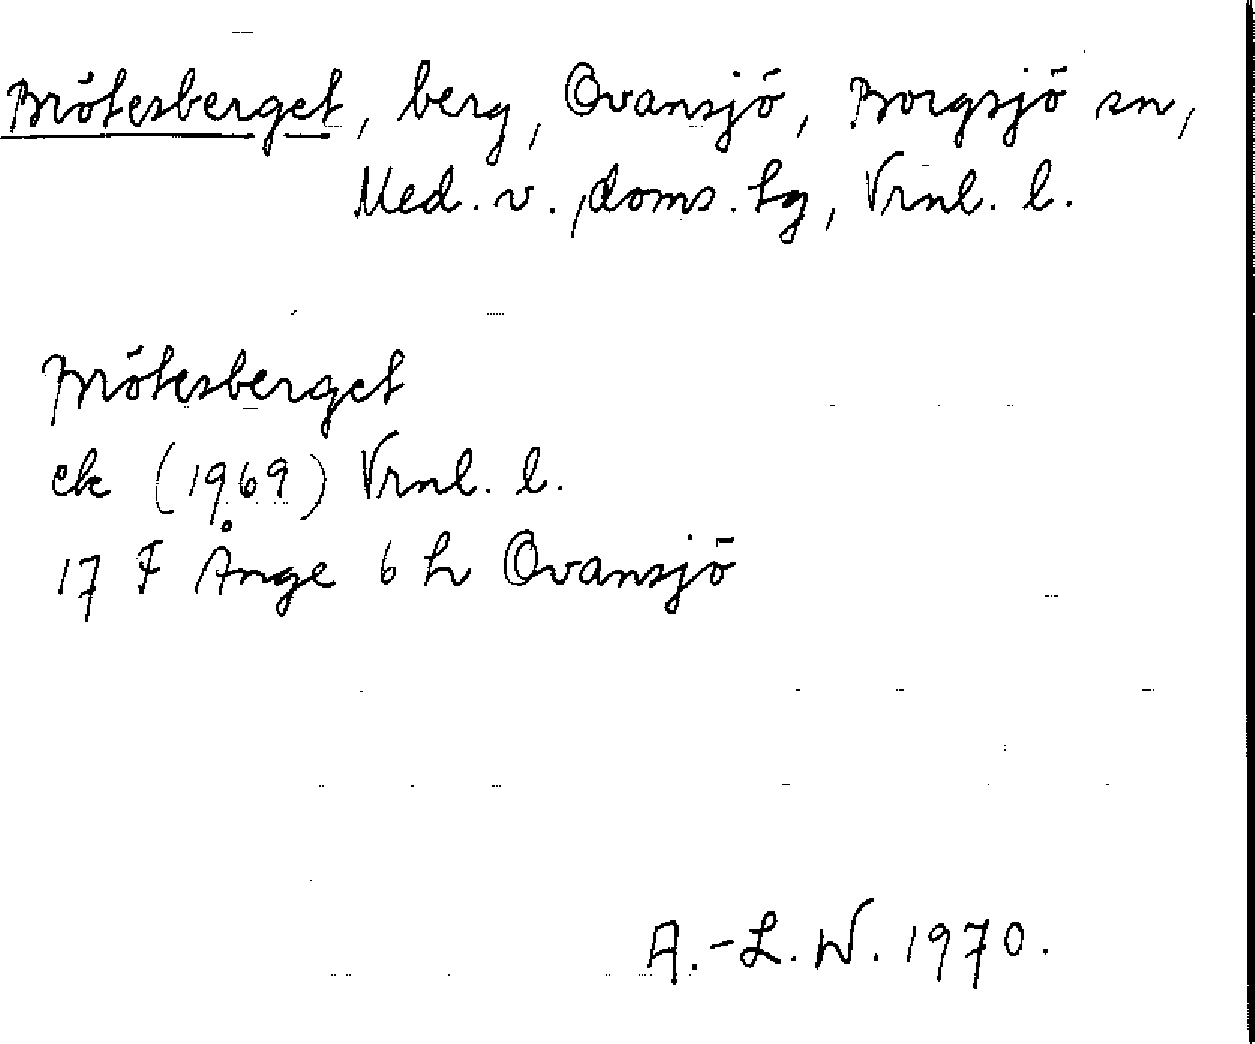 Brötesberget, berg, Ovansjö, Borgsjö sn,
Med. v. doms. tg, Vrnl. l.
Brötesberget
ek (1969) Vrnl. l.
17 F Ånge 6 h Ovansjö
A.-L. W. 1970.